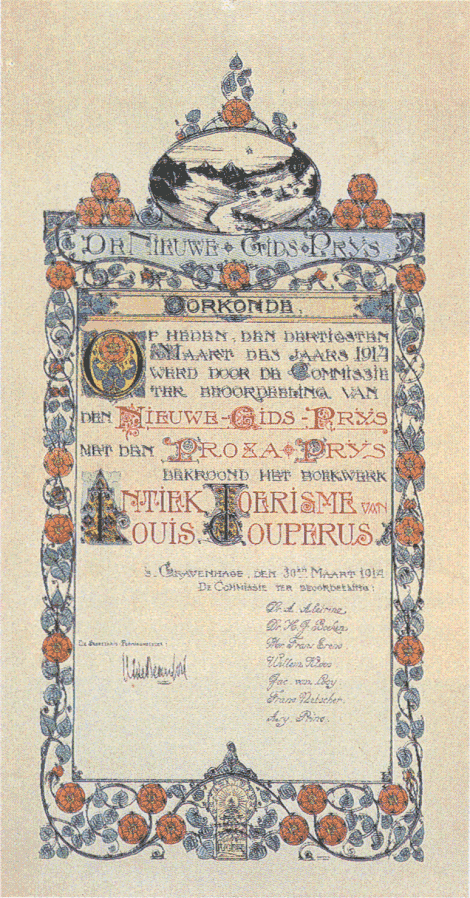 De Nieuwe Gids Prys
Oorkonde,
Op heden, den dertigsten
Maart des jaars 1914
werd door de Commissie
ter beoordeeling van
den Nieuwe-Gids-Prys
met den Proza Prys
bekroond het boekwerk
Antiek Toerisme van
Louis Couperus.
's Gravenhage, den 30en Maart 1914
De Commissie ter beoordeeling:
Dr. A. Aletrino
Dr. H. J. Boeken
Mr. Frans Erens
Willem Kloos
Jac. van Looy
Frans Netscher
Ary Prins.
De Secretaris-Penningmeester: